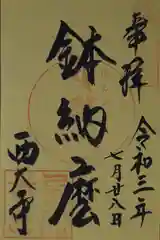 奉拝
令和三年
七月廿八日
鉢納麿
西大寺